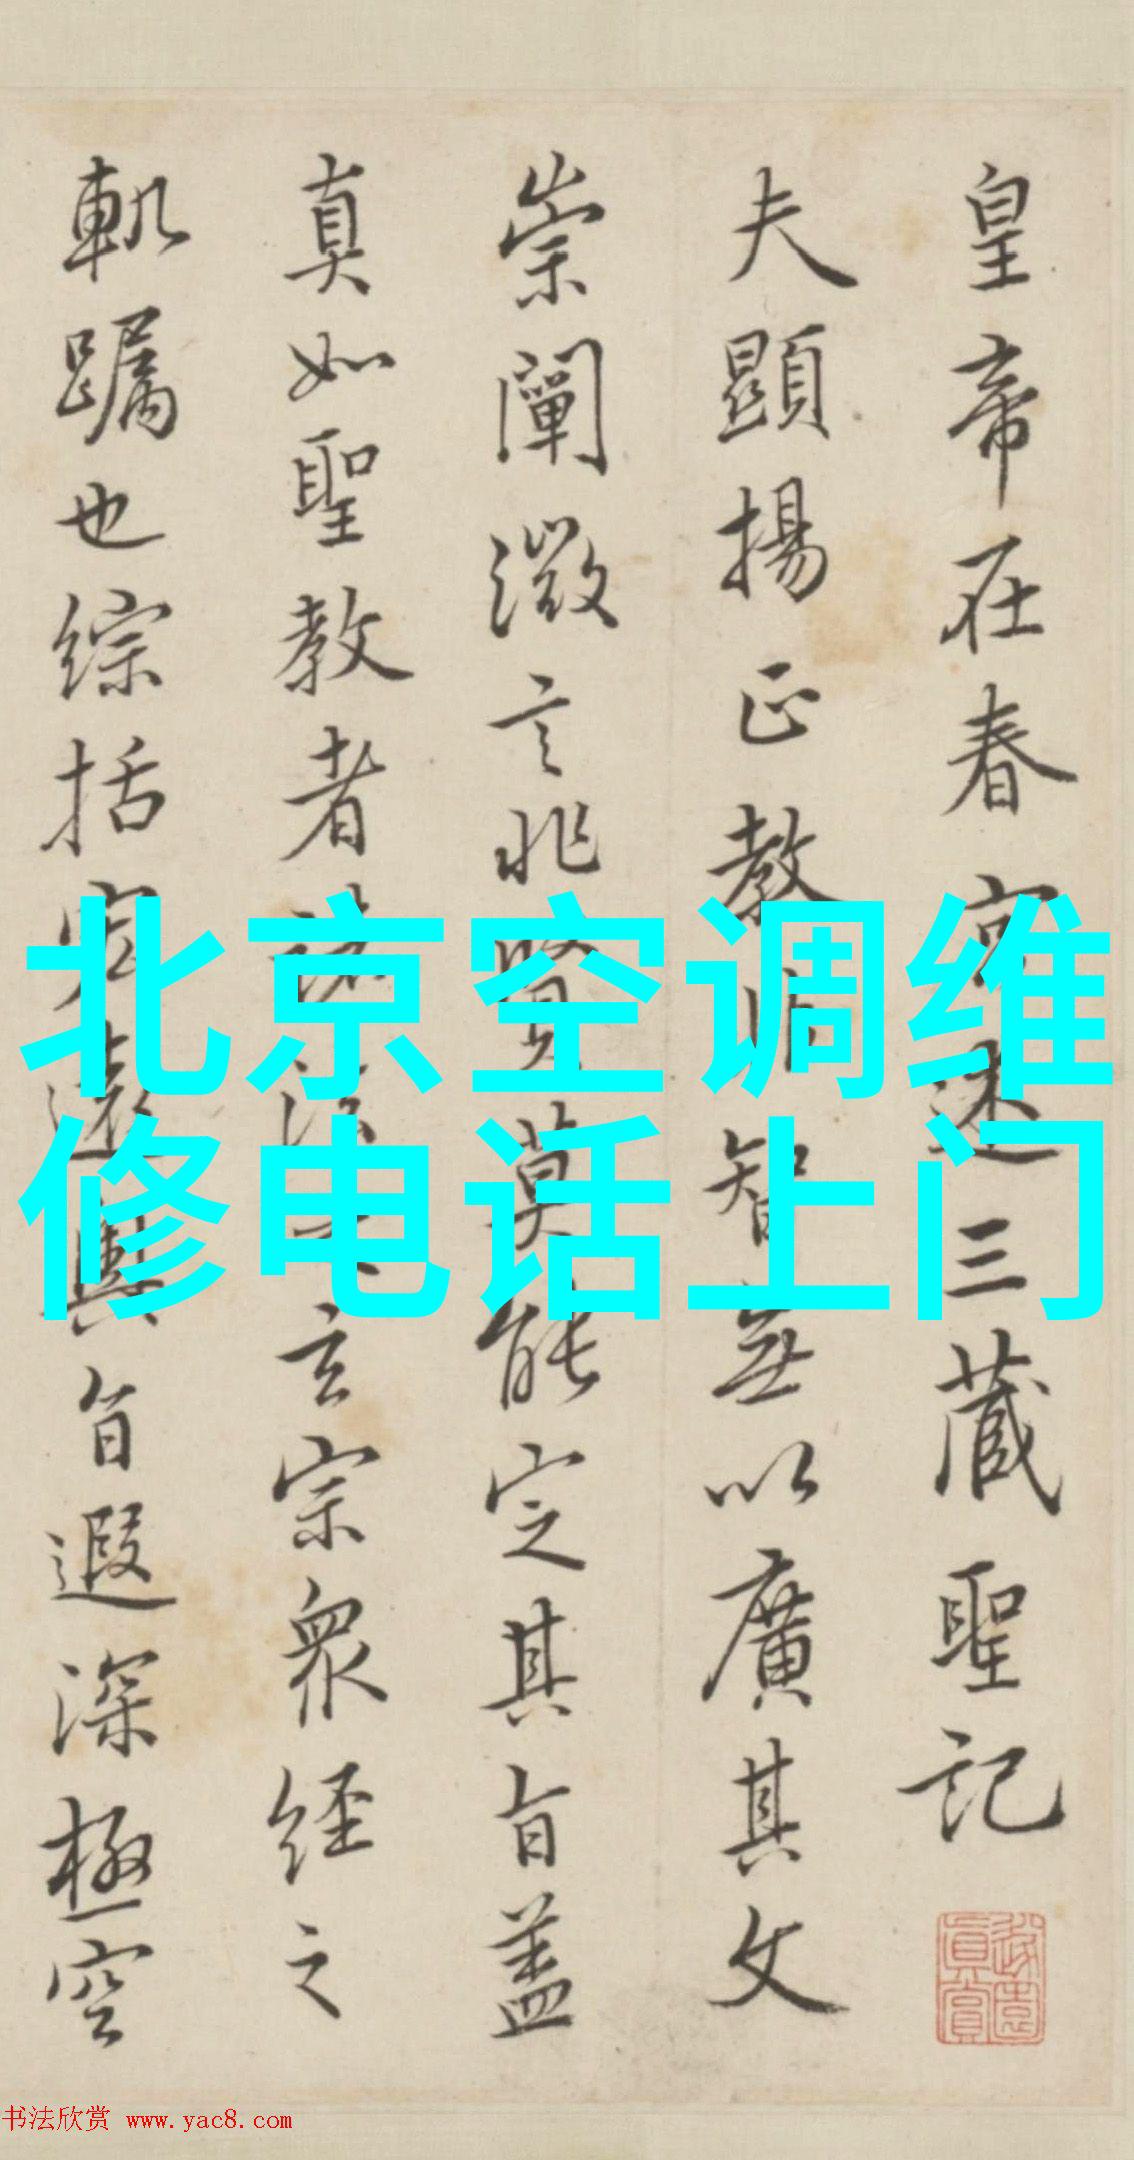 皇帝在春宮述三藏聖記
夫顯揚正教非智無以廣其文
崇闡微言非賢莫能定其旨盖
真如聖教者諸法之玄宗衆經之
軌躅也綜括宏遠奧旨遐深極空
北京空调维
修电话上门
书法欣赏 www.yac8.com